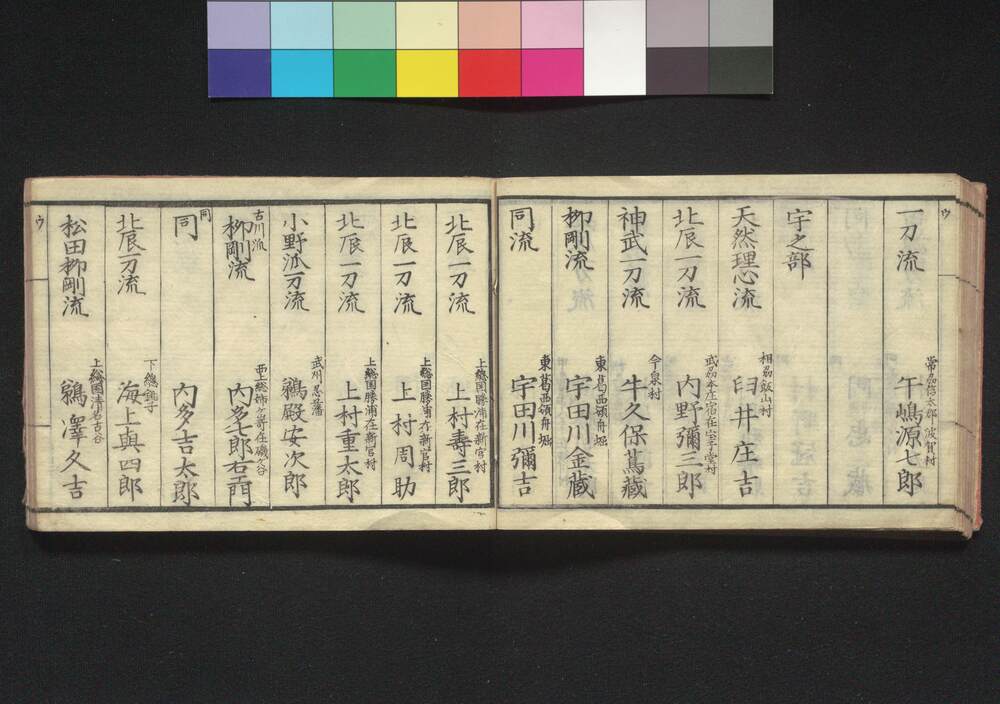 ウ
一刀流
常州信太郡 波賀村
午嶋源七郎
宇之部
天然理心流
相州飯山村
臼井庄吉
北辰一刀流
武州本庄宿在宝子堂村
内野彌三郎
神武一刀流
今泉村
牛久保蔦蔵
柳剛流
東葛西領舟堀
宇田川金蔵
同流
東葛西領舟堀
宇田川彌吉
北辰一刀流
上総国勝浦在新官村
上村寿三郎
北辰一刀流
上総国勝浦在新官村
上村周助
北辰一刀流
上総国勝浦在新官村
上村重太郎
小野派一刀流
武州忍藩
鵜殿安次郎
古川派
柳剛流
西上総姉ヶ崎在磯ヶ谷
内多七郎右エ門
同
同
内多吉太郎
北辰一刀流
下總銚子
海上與四郎
松田柳剛流
上総国清名古谷
鵜澤久吉
ウ